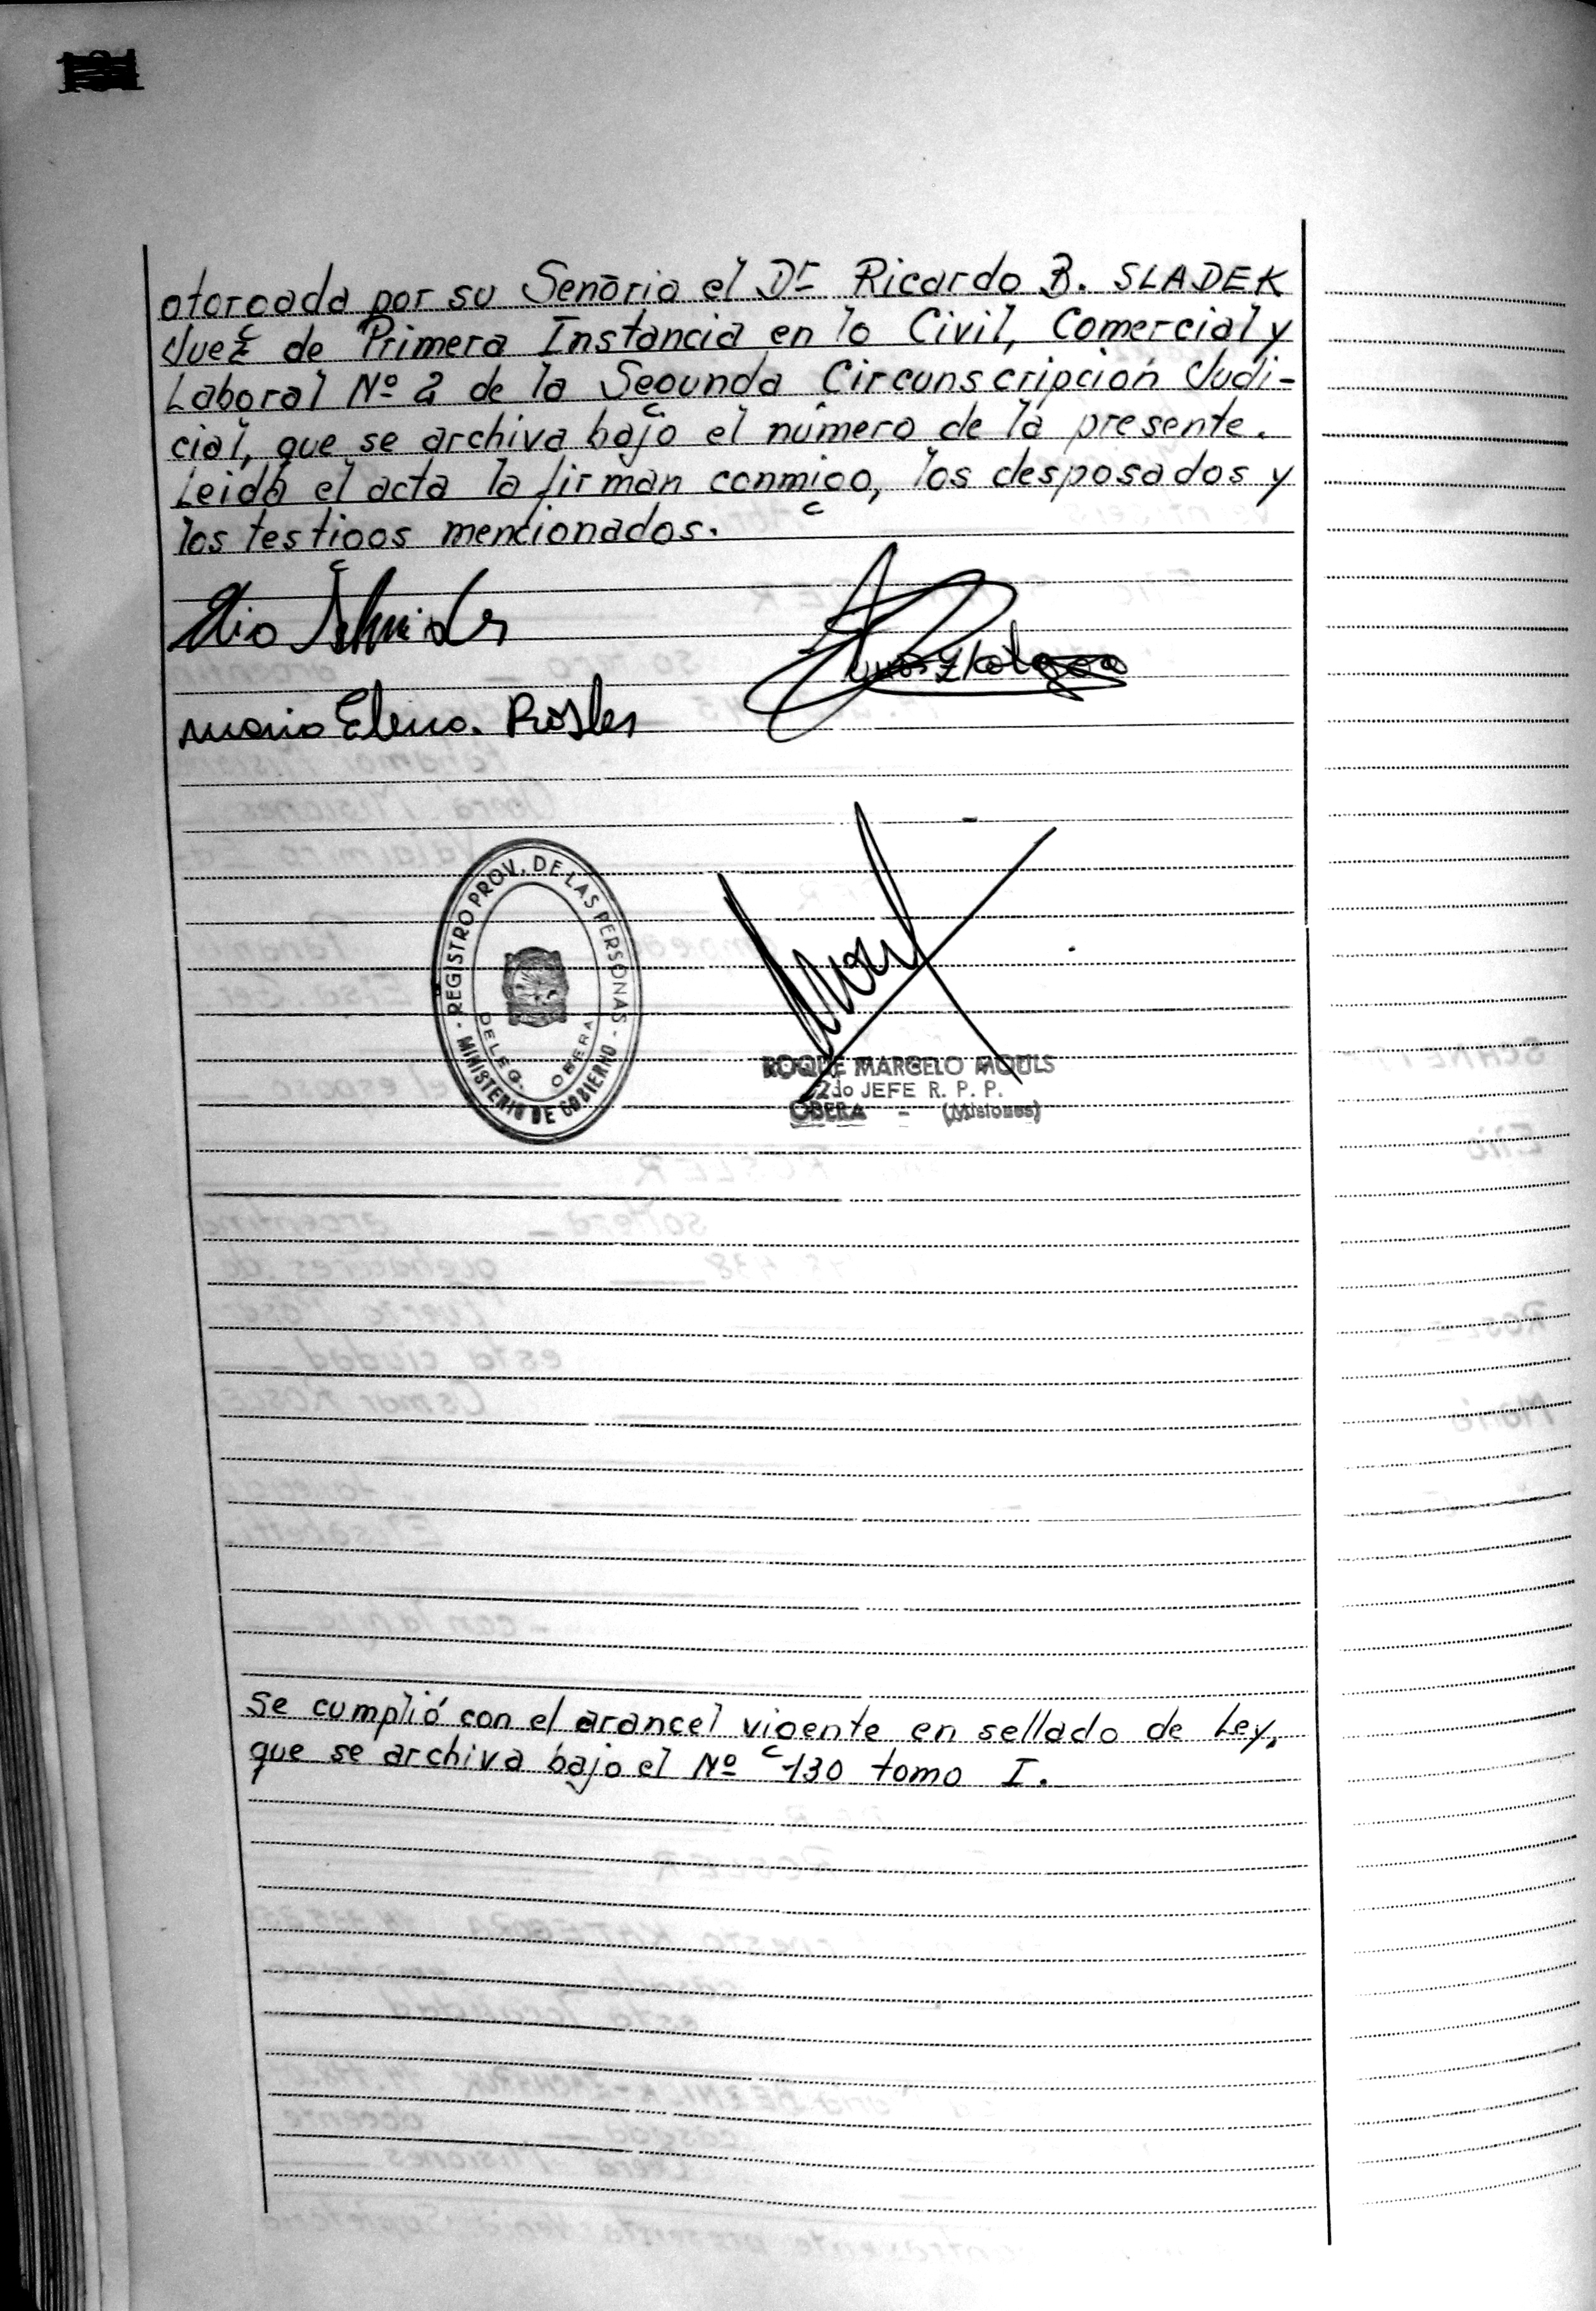 otorgada por su Senōria el Dr Ricardo B. SLADEK
Juez de Primera Instancia en lo Civil, Comercial y
Laboral Nº 2 de la Segunda Circunscripción Judi-
cial, que se archiva bajo el número de la presente.
Leida el acta la firman conmigo, los desposados y
los testigos mencionados.
Elio
Maria Elena. Rosler
REGISTRO PROV. DE LAS PERSONAS
MINISTERIO DE GOBIERNO
DELEG. OBERA
ROQUE MARCELO MOULS
2do JEFE R. P. P.
OBERA - (Misiones)
se cumplió con el arancel vigente en sellado de Ley,
que se archiva bajo el Nº 130 tomo I.